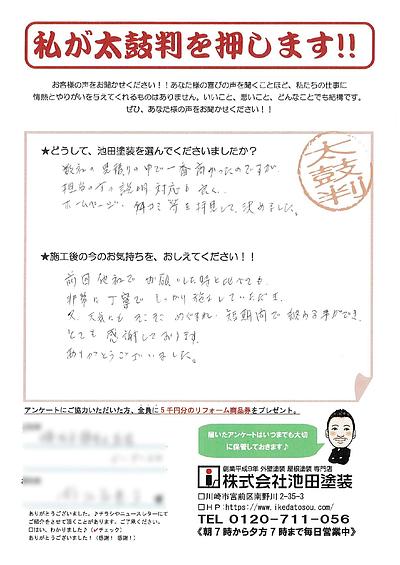 私が太鼓判を押します!!
お客様の声をお聞かせください!!あなた様の喜びの声を聞くことほど、私たちの仕事に
情熱とやりがいを与えてくれるものはありません。いいこと、悪いこと、どんなことでも結構です。
ぜひ、あなた様の声をお聞かせください!!
★どうして、池田塗装を選んでくださいましたか?
太鼓判
数社の見積りの中で一番高かったのですが
担当の方の説明対応も良く、
ホームページ・口コミ等を拝見して決めました。
★施工後の今のお気持ちを、おしえてください!!
前回他社でお願いした時と比べても
非常に丁寧でしっかり施工していただき、
又、天気にもそこそこめぐまれ、短期間で終わる事ができ、
とても感謝しております。
ありがとうございました。
アンケートにご協力いただいた方、全員に5千円分のリフォーム商品券をプレゼント。
届いたアンケートはいつまでも大切
に保管しておきます♪
創業平成9年 外壁塗装 屋根塗装 専門店
株式会社池田塗装
口川崎市宮前区南野川2-35-3
口HP:https://www.ikedatosou.com/
TEL 0120-711-056
《朝7時から夕方7時まで毎日営業中》
ありがとうございます。♪チラシやニュースレターにて
ご紹介をさせて頂くことがあります。ご了承ください。
口はい、わかりました♪(✓チェック)
ありがとうございます!(感謝!感謝!)